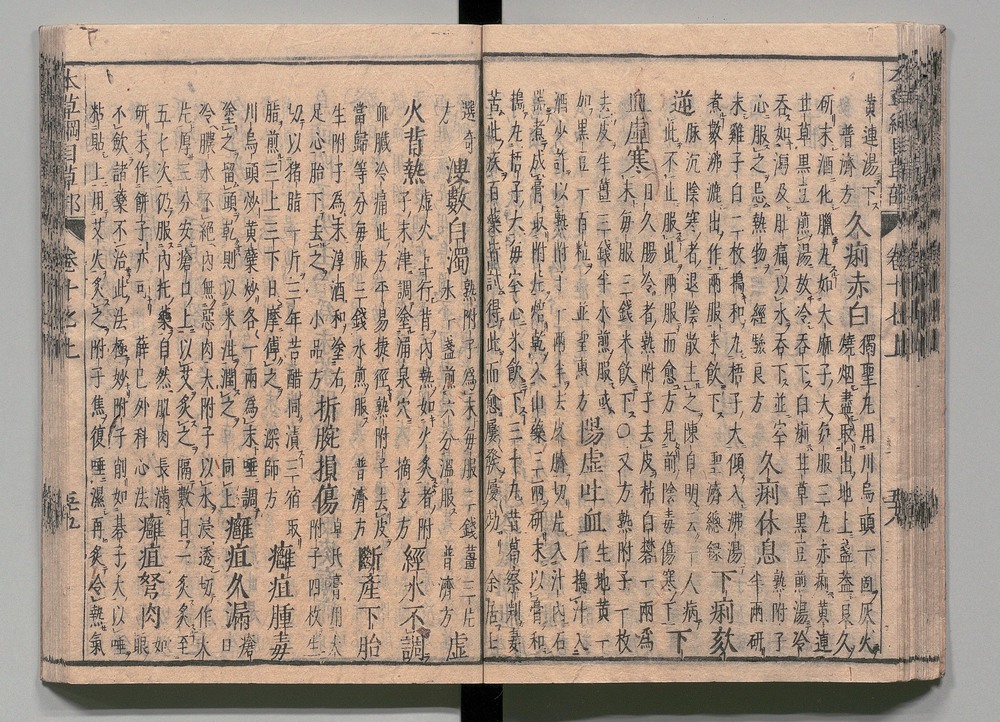 黄連湯下普濟方久痢赤白獨聖丸用川烏頭一箇灰火
燒烟盡取出地上盞蓋良久
研末酒化臘丸如大麻子大每服三丸赤痢黄連
甘草黒豆煎湯放冷呑下白痢甘草黒豆煎湯冷
呑如瀉及肚痛以水呑下並空
心服之忌熱物經驗良方久痢休息熟附子半兩研
末雞子白二枚搗和丸梧子大傾入沸湯
煮數沸漉出作兩服米飲下聖濟總錄下痢欬
逆脉沉陰寒者退陰散主之陳自明云一人病
此不止服此兩服而愈方見前陰毒傷寒下下
血虚寒下血日久腸冷者熟附子去皮枯白礬一兩為
末毎服三錢米飲下○又方熟附子一枚
去皮生薑三錢半水煎服或
加黒豆一百粒並聖惠方陽虚吐血生地黄一斤搗汁入
酒少許以熟附子一兩半去皮臍切片入汁內石
器煮成膏取附片焙乾入山藥三兩研末以膏和
搗丸梧子大毎空心米飲下三十丸昔葛察判妻
苦此疾百藥皆試得此而愈屢發屢効余居士
選奇方溲數白濁熟附子爲末毎服二錢薑三片
水一盞煎六分溫服普濟方虚
火背熱虚火上行背內熱如火炙者附
子末津調塗涌泉穴摘玄方經水不調
血臓冷痛此方平易捷徑熟附子去皮
當歸等分毎服三錢水煎服普濟方斷產下胎
生附子爲末淳酒和塗右
足心胎下去之小品方折腕損傷卓氏膏用大附子四枚生
切以猪脂一斤三年苦醋同漬三宿取
脂煎三上三下日摩傅之深師方癰疽腫毒
川烏頭炒黄蘗炒各一兩爲末唾調
塗之留頭乾則以米泔潤之同上癰疽久漏瘡口
冷膿水不絕內無惡肉大附子以水浸透切作大
片厚三分安瘡口上以艾炙之隔數日一炙炙至
五七次仍服內托藥自然肌肉長滿
研末作餅子亦可薛己外科心法癰疽弩肉如眼
不斂諸藥不治此法極妙附子削如碁子大以唾
粘貼上用艾火炙之附子焦復唾濕再炙令熱氣
本草綱目草部 卷十七上